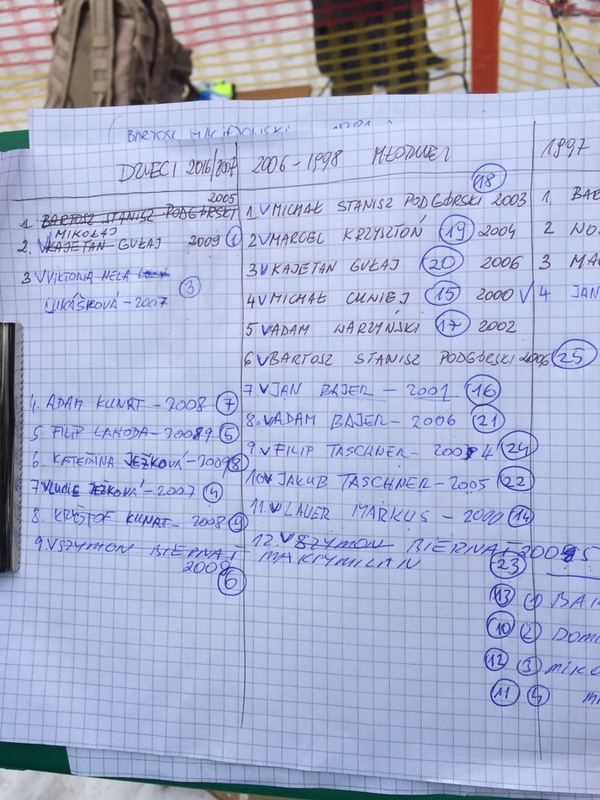 BARTOSZ
DZIECI 2016/2007
2005
1. BARTOSZ STANISZ PODGÓRSKI
MIKOŁAJ
2. V KAJETAN GUŁAJ 2009 1
3 V VIKTORIA NELA
LUKÁŠKOVÁ - 2007 3
4. ADAM KUNAT - 2008 7
5. FILIP LAHODA - 2009 5
6. KATEŘINA JEŽKOVÁ - 2009 8
7. V LUCIE JEŽKOVÁ - 2007 4
8. KRYŠTOF KUNAT - 2008 9
9. V SZYMON BIERNAT
2008 6
2006-1998 MŁODZIEŻ
18
1 V MICHAŁ STANISZ PODGÓRSKI 2003
2 V MARCEL KRZYSZTOŃ 19 2004
3 V KAJETAN GUŁAJ 20 2006
4 V MICHAŁ CHNIEJ 15 2000
5 V ADAM WARZYŃSKI 17 2002
6 V BARTOSZ STANISZ PODGÓRSKI 2006 25
7. V JAN BAJER - 2001 16
8. V ADAM BAJER - 2006 21
9 V FILIP TASCHNER - 2004 24
10 V JAKUB TASCHNER - 2005 22
11 V LAUER MARKUS - 2000 14
12. V SZYMON BIERNAT 2005
MAKSYMILIAN 23
1997
1. BAR
2 NO
3 MA
V 4 JAN
13 1 BAR
10 2 DOM
12 3 MIKO
11 4 M